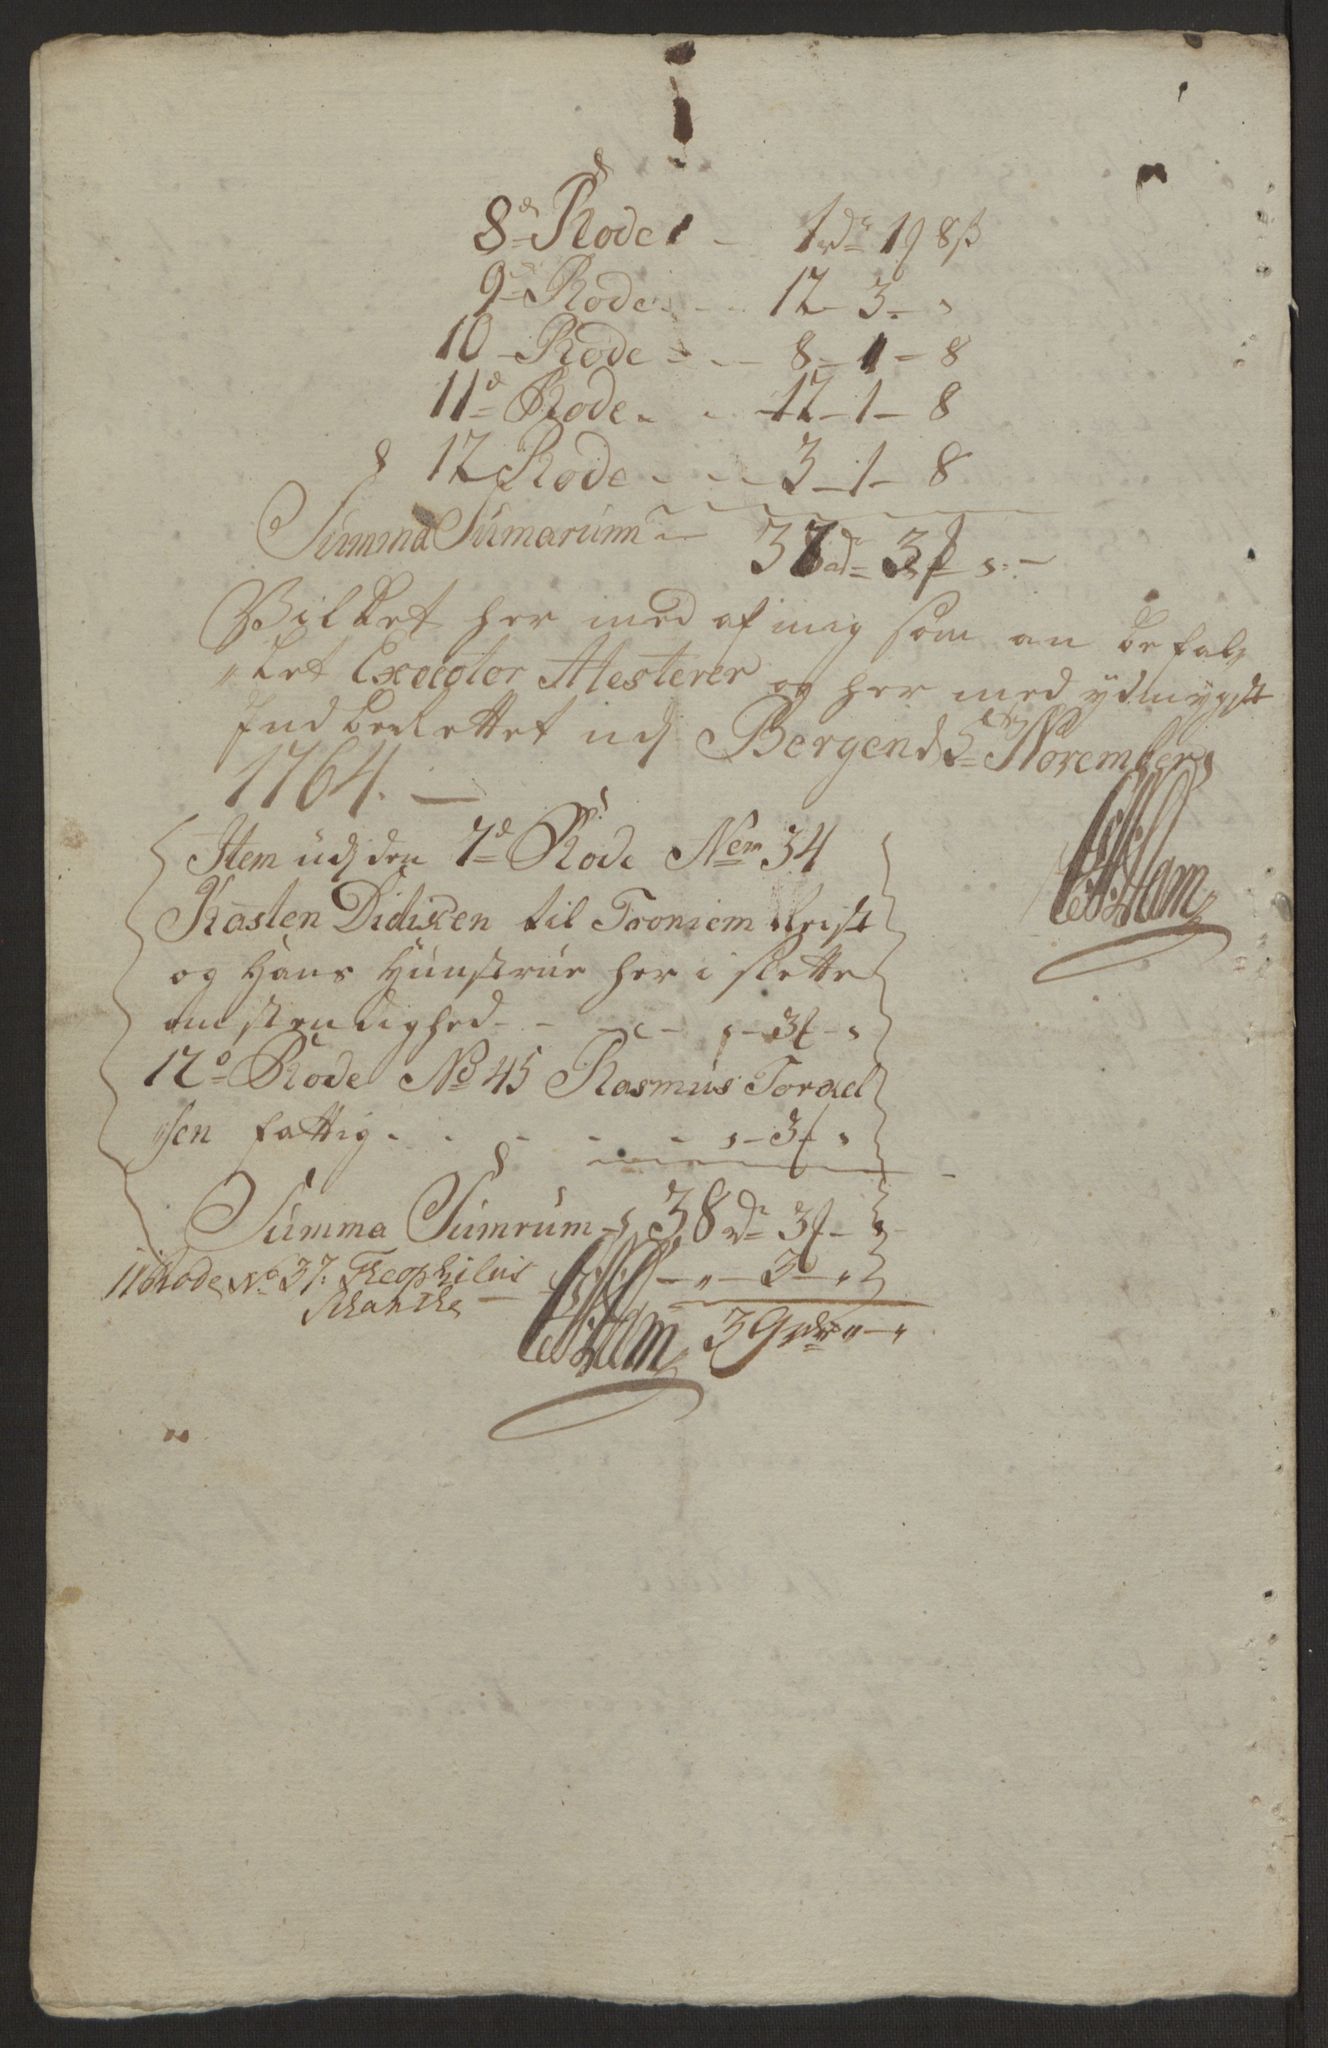 8d Rode - 1 rdr 1 f 8 ß
9d Rode - - 12 - 3 - "
10 - Rode - - 8 - 1 - 8
11d Rode - - 12 - 1 - 8
12 Rode - - 3 - 1 - 8
Summa Sumarum - 37 rdr 3 f - " -
Vilket her med af mig som an befal
"let Execqtor Atesterer og her med ydmygst
Indberettet udj Bergen d 5te November
1764. -
Item udj den 7d Rode Nem 34
Kasten Didixen til Troniem Reist
og Hans Hunstrue her i slette
omstendighed - - - " - 3 f - "
12d Rode No 45 Rasmus Torkel
"sen fattig - - - - " - 3 f - "
Summa Sumrum - 38 rdr 3 f - "
11 Rode No 37: Theophilus - " - 3 - "
Schanche -
39 rdr " - "